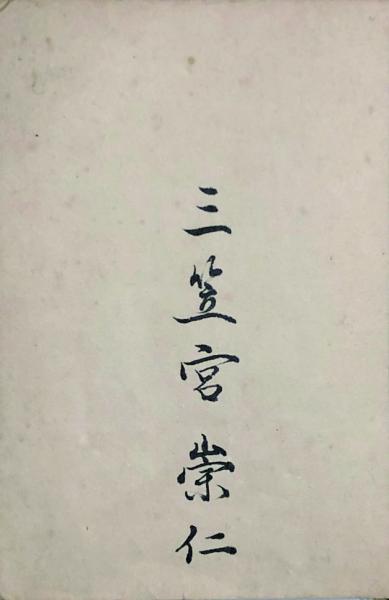 三笠宮崇仁